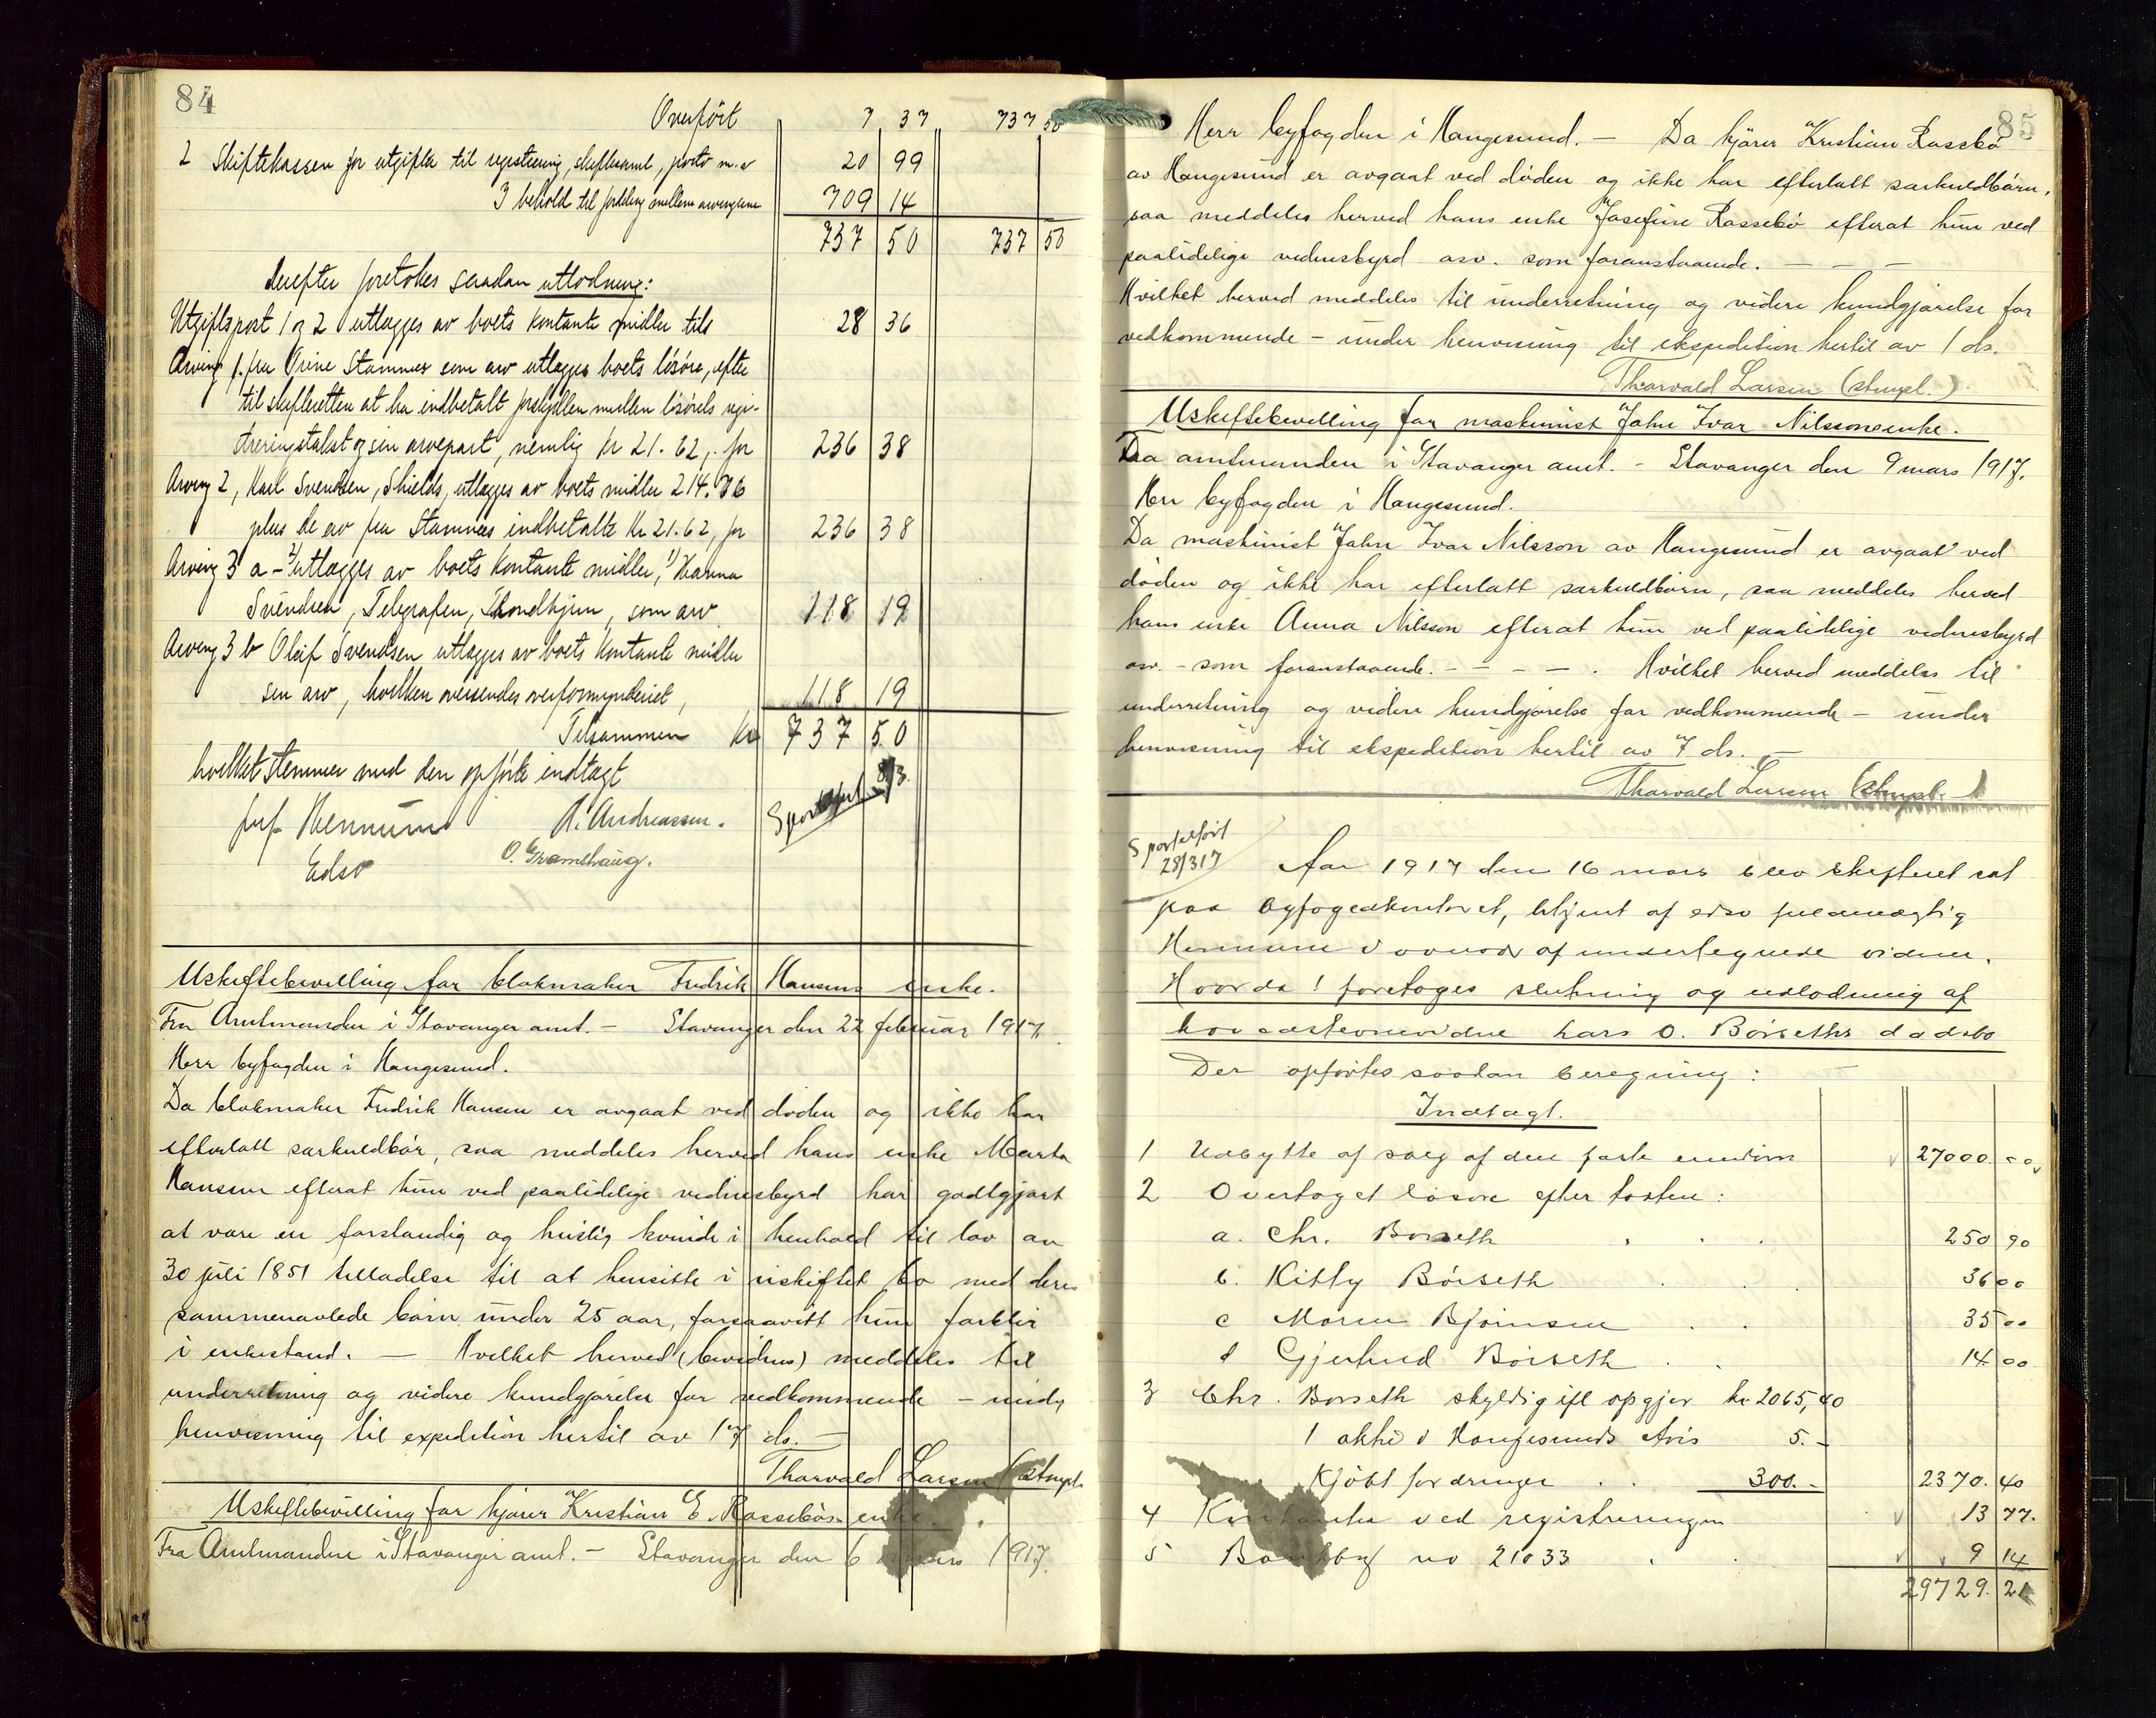 84
Overført 7 37 737 50
2 Skiftekassen for utgifter til registrering, skiftesaml, porto m.v 20 99
I behold til fordeling mellem arvingerne 709 14
737 50 737 50
Derefter foretokes saadan utlodning:
Utgiftspost 1 og 2 utlægges av boets kontante midler tils 28 36
Arving 1. fru Trine Stamnes som arv utlægges boets løsøre, efter
til skifteretten at ha indbetalt forskjellen mellem løsørets regi-
streringstakst og sin arvepart, nemlig kr 21.62, for 236 38
Arving 2, Karl Svendsen, Shields, utlægges av boets midler 214.76
plus de av fru Stamnes indbetalte kr 21.62, for 236 38
Arving 3 a - utlægges av boets kontante midler, Hanna
Svendsen, Telegrafen, Trondhjem, som arv 118 19
Arving 3 b Oleif Svendsen utlægges av boets kontante midler
sin arv, hvilken oversendes overformynderiet, 118 19
Tilsammen Kr 737 50
hvilket stemmer med den opførte indtægt
Hermann A. Andreassen.
Edsv O. Gramshaug.
Sportelført 8/3.
Uskiftebevilling for blokmaker Fredrik Hansens enke.
Fra Amtmanden i Stavanger amt. - Stavanger den 22 februar 1917.
Herr byfogden i Haugesund.
Da blokmaker Fredrik Hansen er avgaat ved døden og ikke har
efterlatt særkuldbør, saa meddeles herved hans enke Marta
Hansen efterat hun ved paalidelige vidnesbyrd har godtgjort
at være en forstandig og huslig kvinde i henhold til lov av
30 juli 1851 tilladelse til at hensitte i uskiftet bo med deres
sammenavlede børn under 25 aar, forsaavitt hun forblir
i enkestand. - Hvilket herved (bevidnes) meddeles til
underretning og videre kundgjørelse for vedkommende - under
henvisning til expedition hertil av 17 ds. -
Thorvald Larsen (stempl.
Uskiftebevilling for kjører Kristian E. Rossebøs enke.
Fra Amtmanden i Stavanger amt. - Stavanger den 6 mars 1917.
85
Herr byfogden i Haugesund. - Da kjører Kristian Rossebø
av Haugesund er avgaat ved døden og ikke har efterlatt særkuldbørn,
saa meddeles herved hans enke Josefine Rossebø efterat hun ved
paalidelige vidnesbyrd osv. som foranstaaende. - - -
Hvilket herved meddeles til underretning og videre kundgjørelse for
vedkommende - under henvisning til ekspedition hertil av 1 ds.
Thorvald Larsen (stempl.)
Uskiftebevilling for maskinist John Ivar Nilssons enke.
Fra amtmanden i Stavanger amt. - Stavanger den 9 mars 1917.
Herr byfogden i Haugesund.
Da maskinist John Ivar Nilsson av Haugesund er avgaat ved
døden og ikke har efterlatt særkuldbørn, saa meddeles herved
hans enke Anna Nilsson efterat hun ved paalidelige vidnesbyrd
osv. - som foranstaaende. - - - - . Hvilket herved meddeles til
underretning og videre kundgjørelse for vedkommende - under
henvisning til ekspedition hertil av 7 ds. -
Thorvald Larsen (stempl. -)
Sportelført
28/3 17
Aar 1917 den 16 mars blev skifteret sat
paa byfogedkontoret, betjent af edsv fuldmægtig
Hermann i overvær af undertegnede vidner.
Hvorda! foretoges slutning og udlodning af
hovedstevnevidne Lars O. Børseths dødsbo
Der opførtes saadan beregning:
Indtægt.
1 Udbytte af salg af den faste eiendom 27000.00
2 Overtaget løsøre efter taksten:
a. Chr. Børseth 250 90
b. Kitty Børseth 36 00
c Maren Bjørnsen 35 00
d Gjertrud Børseth 14 00
3 Chr. Børseth skyldig ifl opgjør kr 2065,40
1 aktie i Haugesunds Avis 5.-
Kjøbt fordringer 300.- 2370.40
4 Kontanter ved registreringen 13 77.
5 Bankbog no 21033 9 14
29729.21